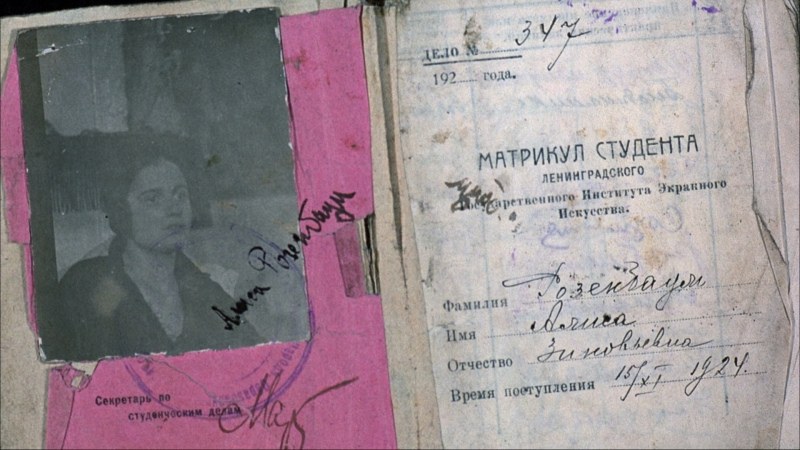 Алиса Розенбаум
Секретарь по
студенческим делам
ДЕЛО № 347
192 года.
МАТРИКУЛ СТУДЕНТА
ЛЕНИНГРАДСКОГО
Государственного Института Экранного
Искусства.
Фамилия Розенбаум
Имя Алиса
Отчество Зиновьевна
Время поступления 15/XI 1924.